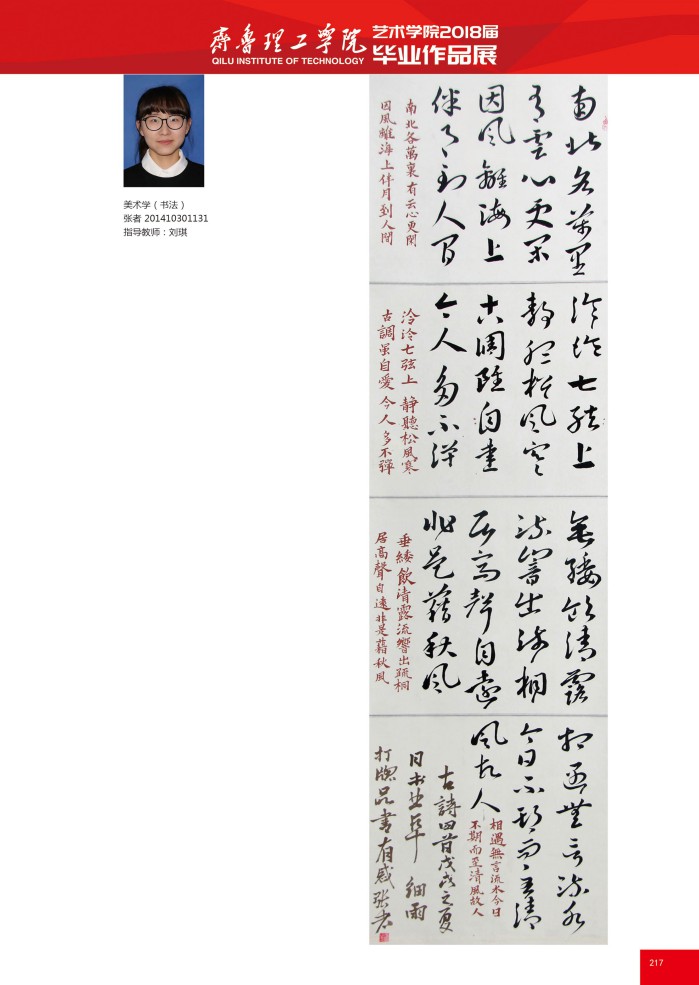 齊魯理工學院
QILU INSTITUTE OF TECHNOLOGY
艺术学院2018届
毕业作品展
美术学（书法）
张者 201410301131
指导教师：刘琪
南北各萬里
有雲心更閑
因風離海上
伴月到人間
南北各萬裏有云心更閑
因風離海上伴月到人間
泠泠七弦上
靜聽松風寒
古調雖自愛
今人多不彈
泠泠七弦上靜聽松風寒
古調虽自愛今人多不彈
垂緌飲清露
流響出疏桐
居高聲自遠
非是藉秋風
垂緌飲清露流響出疏桐
居高聲自遠非是藉秋風
相遇無言流水
今日不期而至清
風故人
相遇無言流水今日
不期而至清風故人
古詩四首戊戌之夏
月书畢 細雨
打 品書有感张者
217